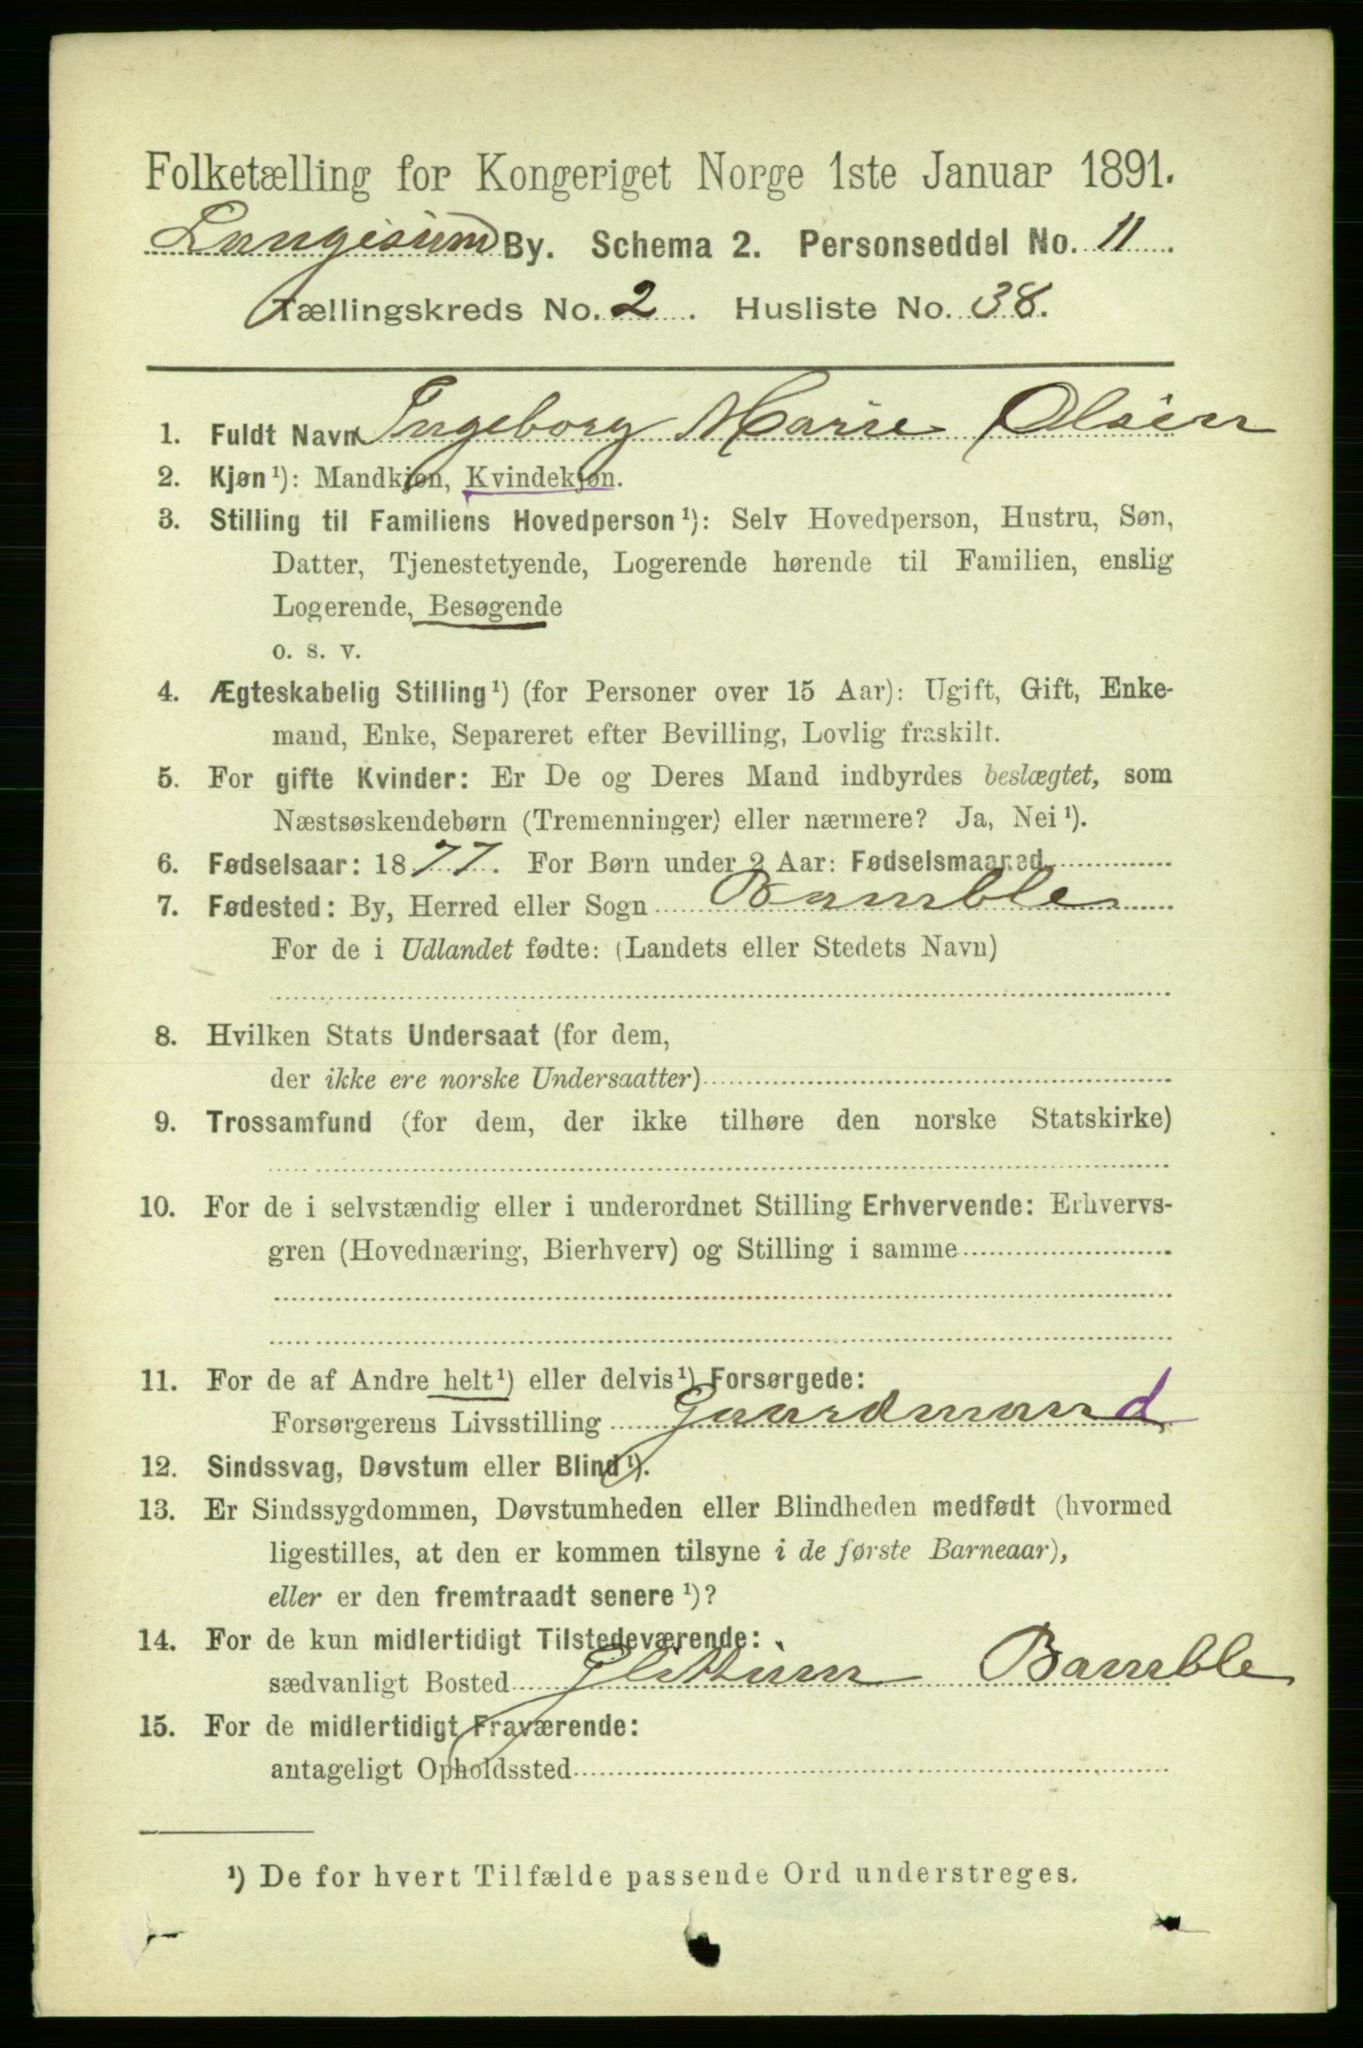 Folketælling for Kongeriget Norge 1ste Januar 1891.
Langesund By. Schema 2. Personseddel No. 11.
Tællingskreds No. 2. Husliste No. 38.
1. Fuldt Navn Ingeborg Marie Olsen
2. Kjøn¹): Mandkjøn, Kvindekjøn.
3. Stilling til Familiens Hovedperson¹): Selv Hovedperson, Hustru, Søn,
Datter, Tjenestetyende, Logerende hørende til Familien, enslig
Logerende, Besøgende
o. s. v.
4. Ægteskabelig Stilling¹) (for Personer over 15 Aar): Ugift, Gift, Enke-
mand, Enke, Separeret efter Bevilling, Lovlig fraskilt.
5. For gifte Kvinder: Er De og Deres Mand indbyrdes beslægtet, som
Næstsøskendebørn (Tremenninger) eller nærmere? Ja, Nei¹).
6. Fødselsaar: 1877. For Børn under 2 Aar: Fødselsmaaned
7. Fødested: By, Herred eller Sogn Bamble
For de i Udlandet fødte: (Landets eller Stedets Navn)
8. Hvilken Stats Undersaat (for dem,
der ikke ere norske Undersaatter)
9. Trossamfund (for dem, der ikke tilhøre den norske Statskirke)
10. For de i selvstændig eller i underordnet Stilling Erhvervende: Erhvervs-
gren (Hovednæring, Bierhverv) og Stilling i samme
11. For de af Andre helt¹) eller delvis¹) Forsørgede:
Forsørgerens Livsstilling Gaardmand
12. Sindssvag, Døvstum eller Blind¹).
13. Er Sindssygdommen, Døvstumheden eller Blindheden medfødt (hvormed
ligestilles, at den er kommen tilsyne i de første Barneaar),
eller er den fremtraadt senere¹)?
14. For de kun midlertidigt Tilstedeværende:
sædvanligt Bosted Glittum Bamble
15. For de midlertidigt Fraværende:
antageligt Opholdssted
¹) De for hvert Tilfælde passende Ord understreges.